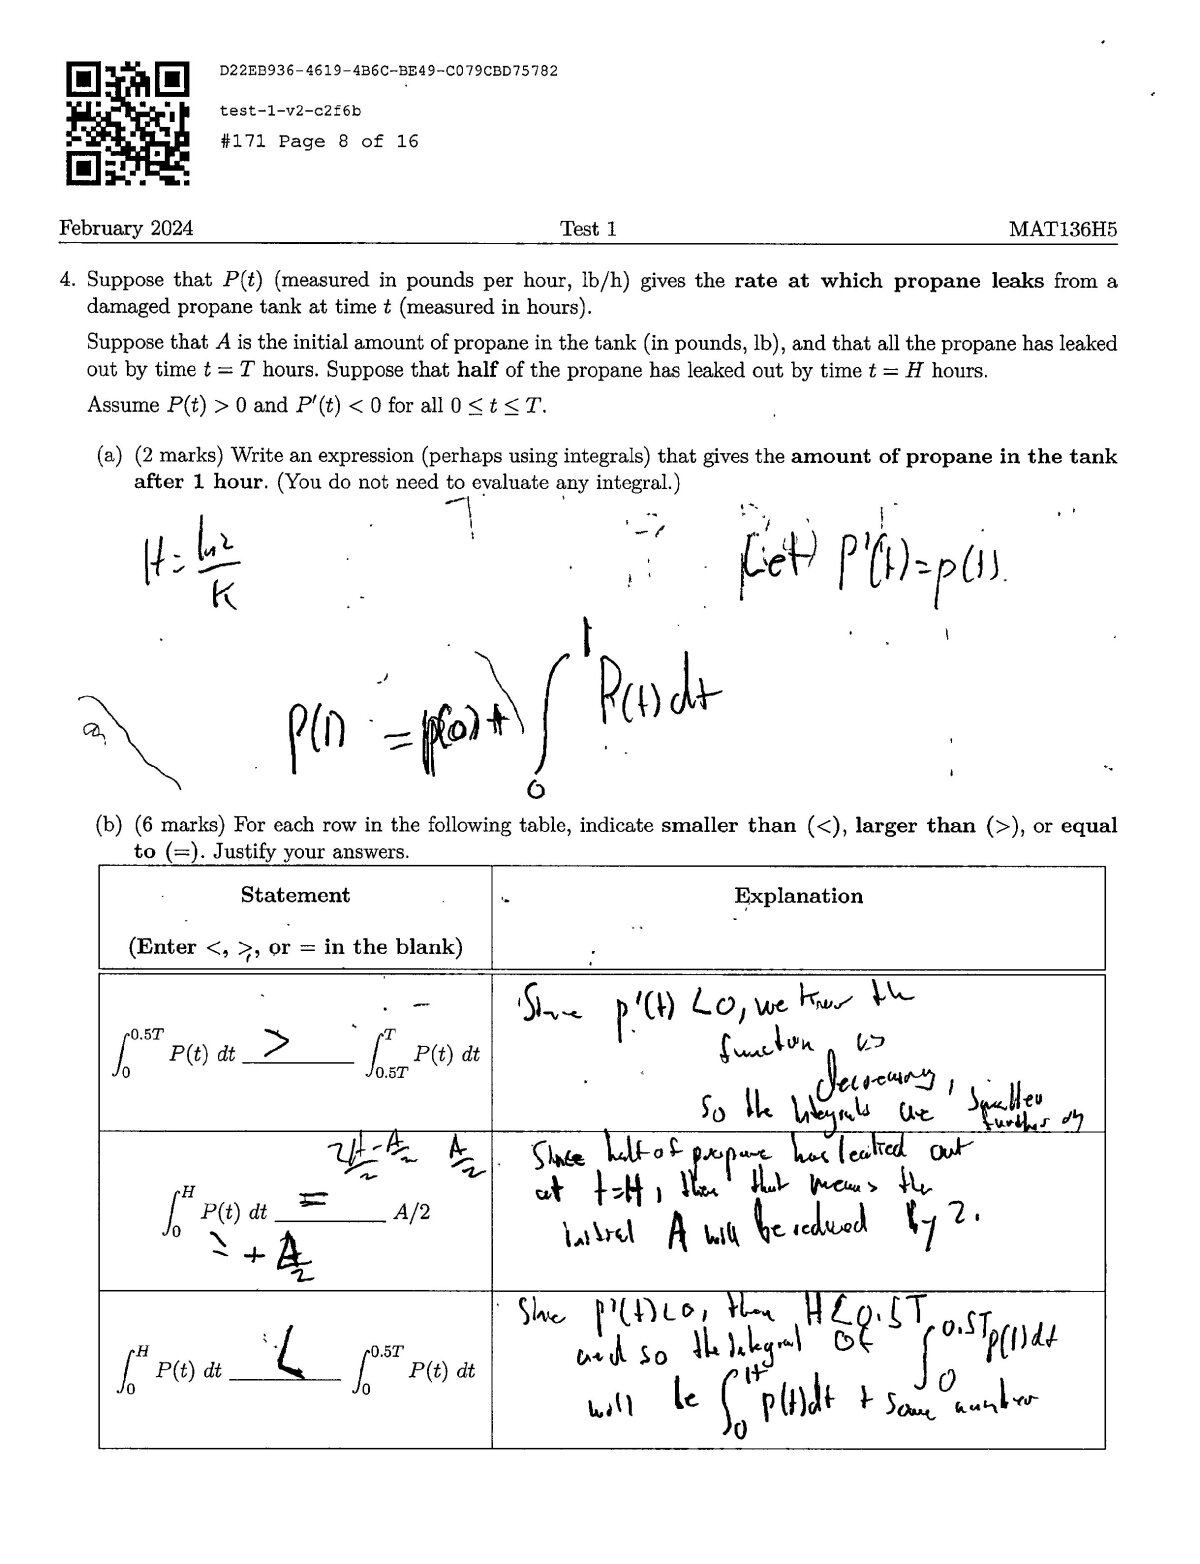 D22EB936-4619-4B6C-BE49-C079CBD75782
test-1-v2-c2f6b
#171 Page 8 of 16
February 2024 Test 1 MAT136H5
4. Suppose that P(t) (measured in pounds per hour, lb/h) gives the rate at which propane leaks from a
damaged propane tank at time t (measured in hours).
Suppose that A is the initial amount of propane in the tank (in pounds, lb), and that all the propane has leaked
out by time t = T hours. Suppose that half of the propane has leaked out by time t = H hours.
Assume P(t) > 0 and P′(t) < 0 for all 0 ≤ t ≤ T.
(a) (2 marks) Write an expression (perhaps using integrals) that gives the amount of propane in the tank
after 1 hour. (You do not need to evaluate any integral.)
H = ln2/K
Let P'(t) = p(1).
P(1) = p(0) + ∫_0^1 P(t) dt
(b) (6 marks) For each row in the following table, indicate smaller than (<), larger than (>), or equal
to (=). Justify your answers.
Statement Explanation
(Enter <, >, or = in the blank)
∫_0^{0.5T} P(t) dt > ∫_{0.5T}^T P(t) dt
Since p'(t) <0, we know the
function is
decreasing,
so the integrals are smaller
further on
A/2
∫_0^H P(t) dt = A/2
= + A/2
Since half of propane has leaked out
at t=H, then that means the
initial A will be reduced by 2.
∫_0^H P(t) dt < ∫_0^{0.5T} P(t) dt
Since p'(t)<0, then H<0.5T
and so the integral of ∫_0^{0.5T} p(t)dt
will be ∫_0^H p(t)dt + some number